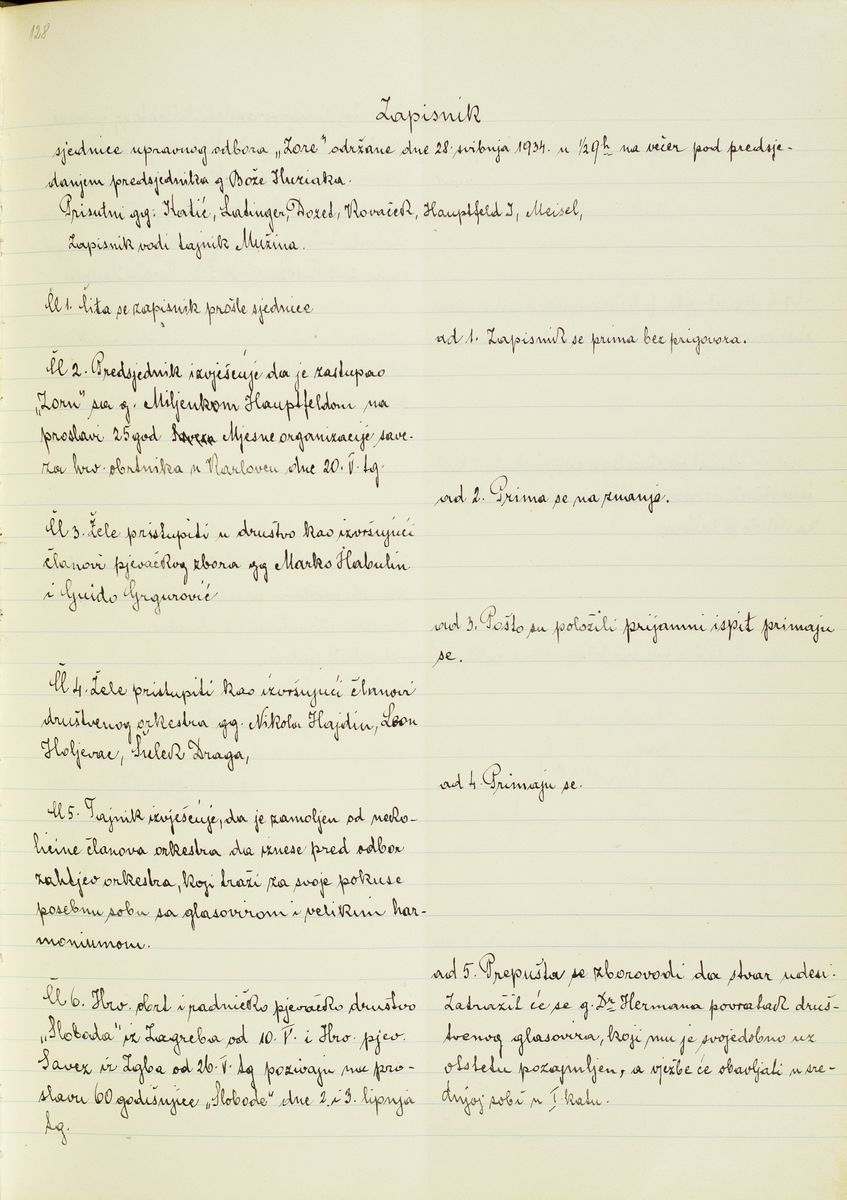 128
Zapisnik
sjednice upravnog odbora „Zore" održane dne 28. svibnja 1934. u ½9h na večer pod predsje-
danjem predsjednika g. Bože
Prisutni gg: Katić, Latinger, Dozet, Kovaček, Hauptfeld I, Meisel,
Zapisnik vodi tajnik Mužina.
Čl 1. Čita se zapisnik prošle sjednice
ad 1. Zapisnik se prima bez prigovora.
Čl 2. Predsjednik izvješćuje da je zastupao
„Zoru" sa g. Miljenkom Hauptfeldom na
proslavi 25 god Mjesne organizacije save-
za hrv. obrtnika u Karlovcu dne 20. V. tg.
ad 2. Prima se na znanje.
Čl 3. Žele pristupiti u društvo kao izvršujući
članovi pjevačkog zbora gg Marko Habulin
i Guido Grgurović
ad 3. Pošto su položili prijamni ispit primaju
se.
Čl 4. Žele pristupiti kao izvršujući članovi
društvenog orkestra gg. Nikola Hajdin, Leon
Holjevac, Šulek Draga,
ad 4. Primaju se.
Čl 5. Tajnik izvješćuje, da je zamoljen od neko-
licine članova orkestra da iznese pred odbor
zahtjev orkestra, koji traži za svoje pokuse
posebnu sobu sa glasovirom i velikim har-
moniumom.
ad 5. Prepušta se zborovodi da stvar udesi.
Zatražit će se g. Dr Hermana povratak druš-
tvenog glasovira, koji mu je svojedobno uz
otštetu pozajmljen, a vježbe će obavljati u sre-
dnjoj sobi u I katu.
Čl 6. Hrv. obrt i radničko pjevačko društvo
„Sloboda" iz Zagreba od 10. V. i Hrv. pjev.
Savez iz Zgba od 26. V. tg pozivaju na pro-
slavu 60 godišnjice „Slobode" dne 2. i 3. lipnja
tg.